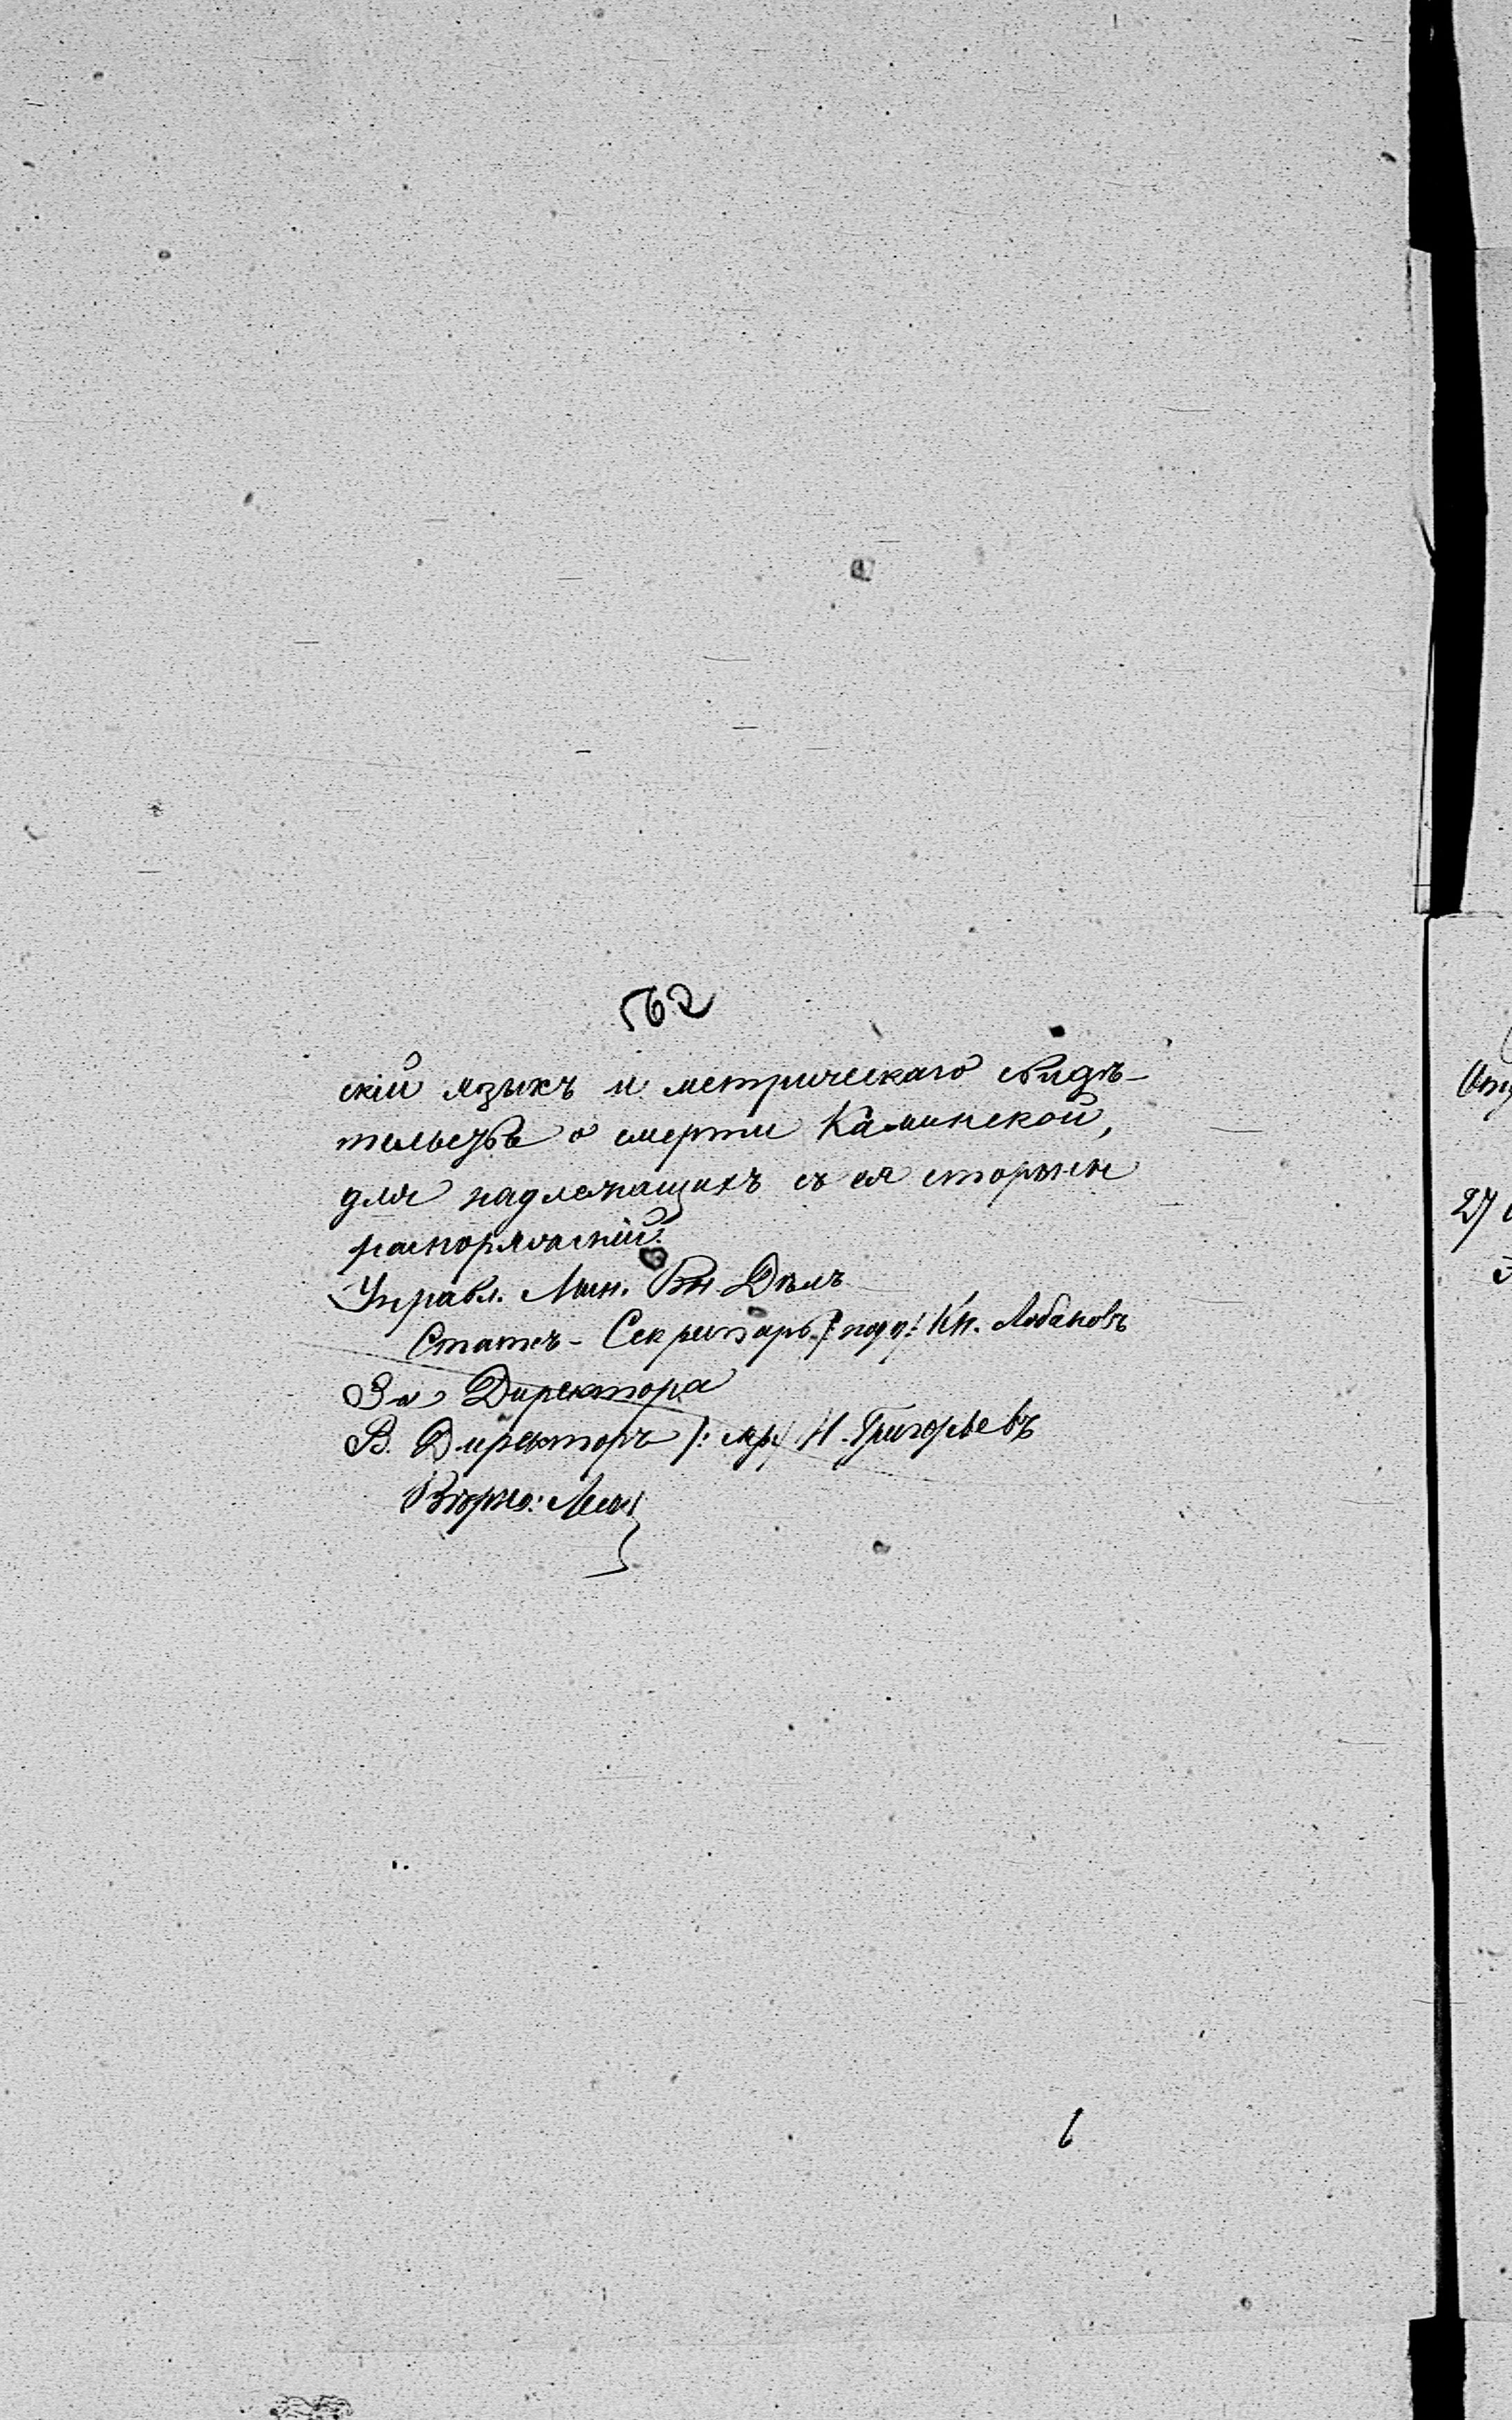 562
скій языкъ и метрическаго свидѣ-
тельства о смерти Каминской,
для надлежащихъ съ ея стороны
распоряженій.
Управл. Мин. Вн. Дѣлъ
Статсъ-Секретарь /: подп: Кн. Лобановъ
За Директора
В. Директоръ /: скр: Н. Григорьевъ
Вѣрно:
27